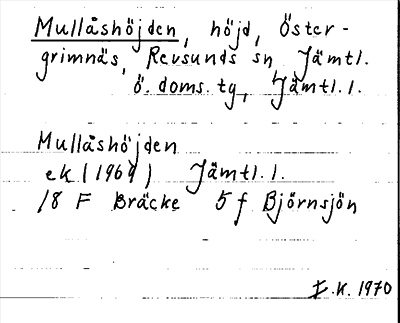 Mullåshöjden, höjd, Öster-
grimnäs, Revsunds sn, Jämtl.
ö. doms. tg, Jämtl. l.
Mullåshöjden
ek (1969) Jämtl. l.
18 F Bräcke 5 f Björnsjön
F.K. 1970